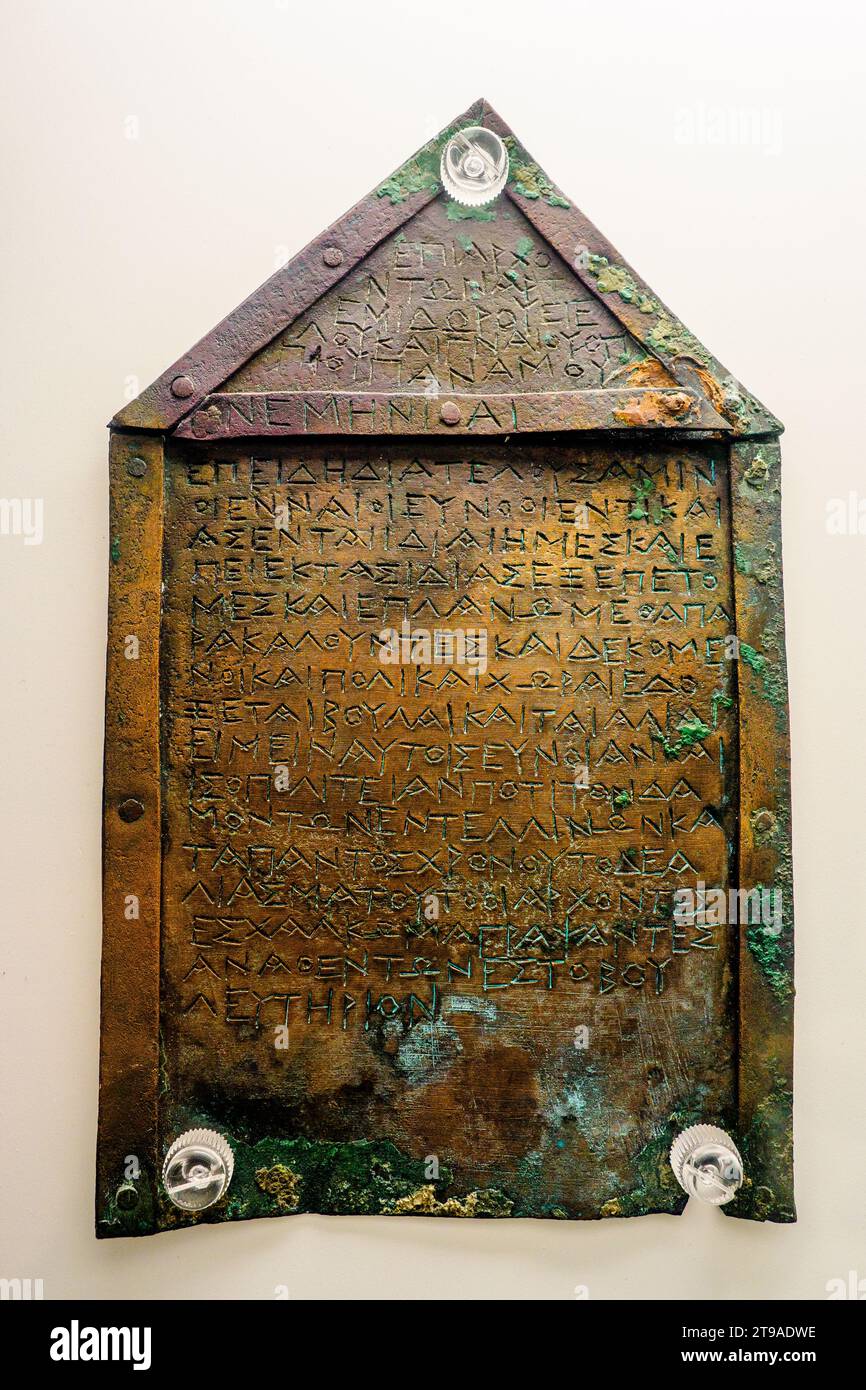 ΕΠΙΑΡΧΟ
ΝΤΩΝΑΡΤ
ΕΜΙΔΩΡΟΥΕΙΕ
ΛΟΥΚΑΙΓΝΑΙΟΥΟΠ
ΠΙΟΥΠΑΝΑΜΟΥ
ΝΕΜΗΝΙΑΙ
ΕΠΕΙΔΗΔΙΑΤΕΛΟΥΣΑΜΙΝ
ΟΙΕΝΝΑΙΟΙΕΥΝΟΟΙΕΝΤΙΚΑΙ
ΑΣΕΝΤΑΙΙΔΙΑΙΗΜΕΣΚΑΙΕ
ΠΕΙΕΚΤΑΣΙΔΙΑΣΕΞΕΠΕΤΟ
ΜΕΣΚΑΙΕΠΛΑΝΩΜΕΘΑΠΑ
ΡΑΚΑΛΟΥΝΤΕΣΚΑΙΔΕΚΟΜΕ
ΝΟΙΚΑΙΠΟΛΙΚΑΙΧΩΡΑΙΕΔΟ
ΞΕΤΑΙΒΟΥΛΑΙΚΑΙΤΑΙΑΛΙΑΙ
ΕΙΜΕΙΝΑΥΤΟΙΣΕΥΝΟΙΑΝΚΑΙ
ΙΣΟΠΟΛΙΤΕΙΑΝΠΟΤΙΤΟΝΔΑ
ΜΟΝΤΩΝΕΝΤΕΛΛΙΝΩΝΚΑ
ΤΑΠΑΝΤΟΣΧΡΟΝΟΥΤΟΔΕΑ
ΛΙΑΣΜΑΤΟΥΤΟΟΙΑΡΧΟΝΤΕΣ
ΕΣΧΑΛΚΩΜΑΓΡΑΨΑΝΤΕΣ
ΑΝΑΘΕΝΤΩΝΕΣΤΟΒΟΥ
ΛΕΥΤΗΡΙΟΝ
alamy
Image ID: 2T9ADWE
www.alamy.com